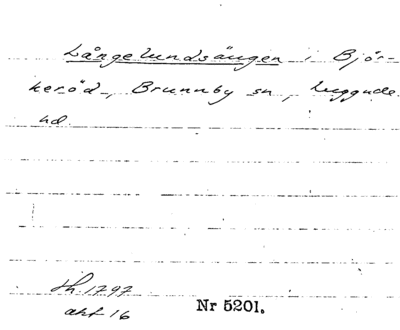 Långelundsängen i Björ-
keröd, Brunnby sn, Luggude
hd.
sh. 1797
akt 16
Nr 5201.